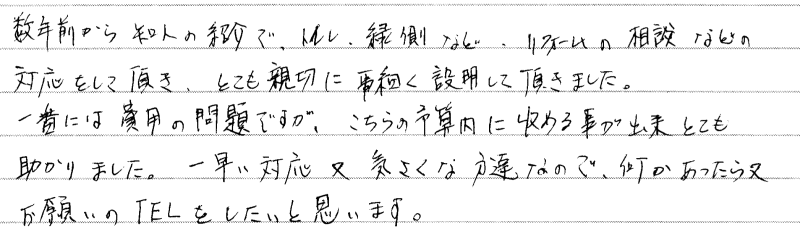 数年前から知人の紹介で、トイレ、縁側など、リフォームの相談などの
対応をして頂き、とても親切に事細く説明して頂きました。
一番には費用の問題ですが、こちらの予算内に収める事が出来とても
助かりました。一早い対応又気さくな方達なので、何かあったら又
お願いのTELをしたいと思います。